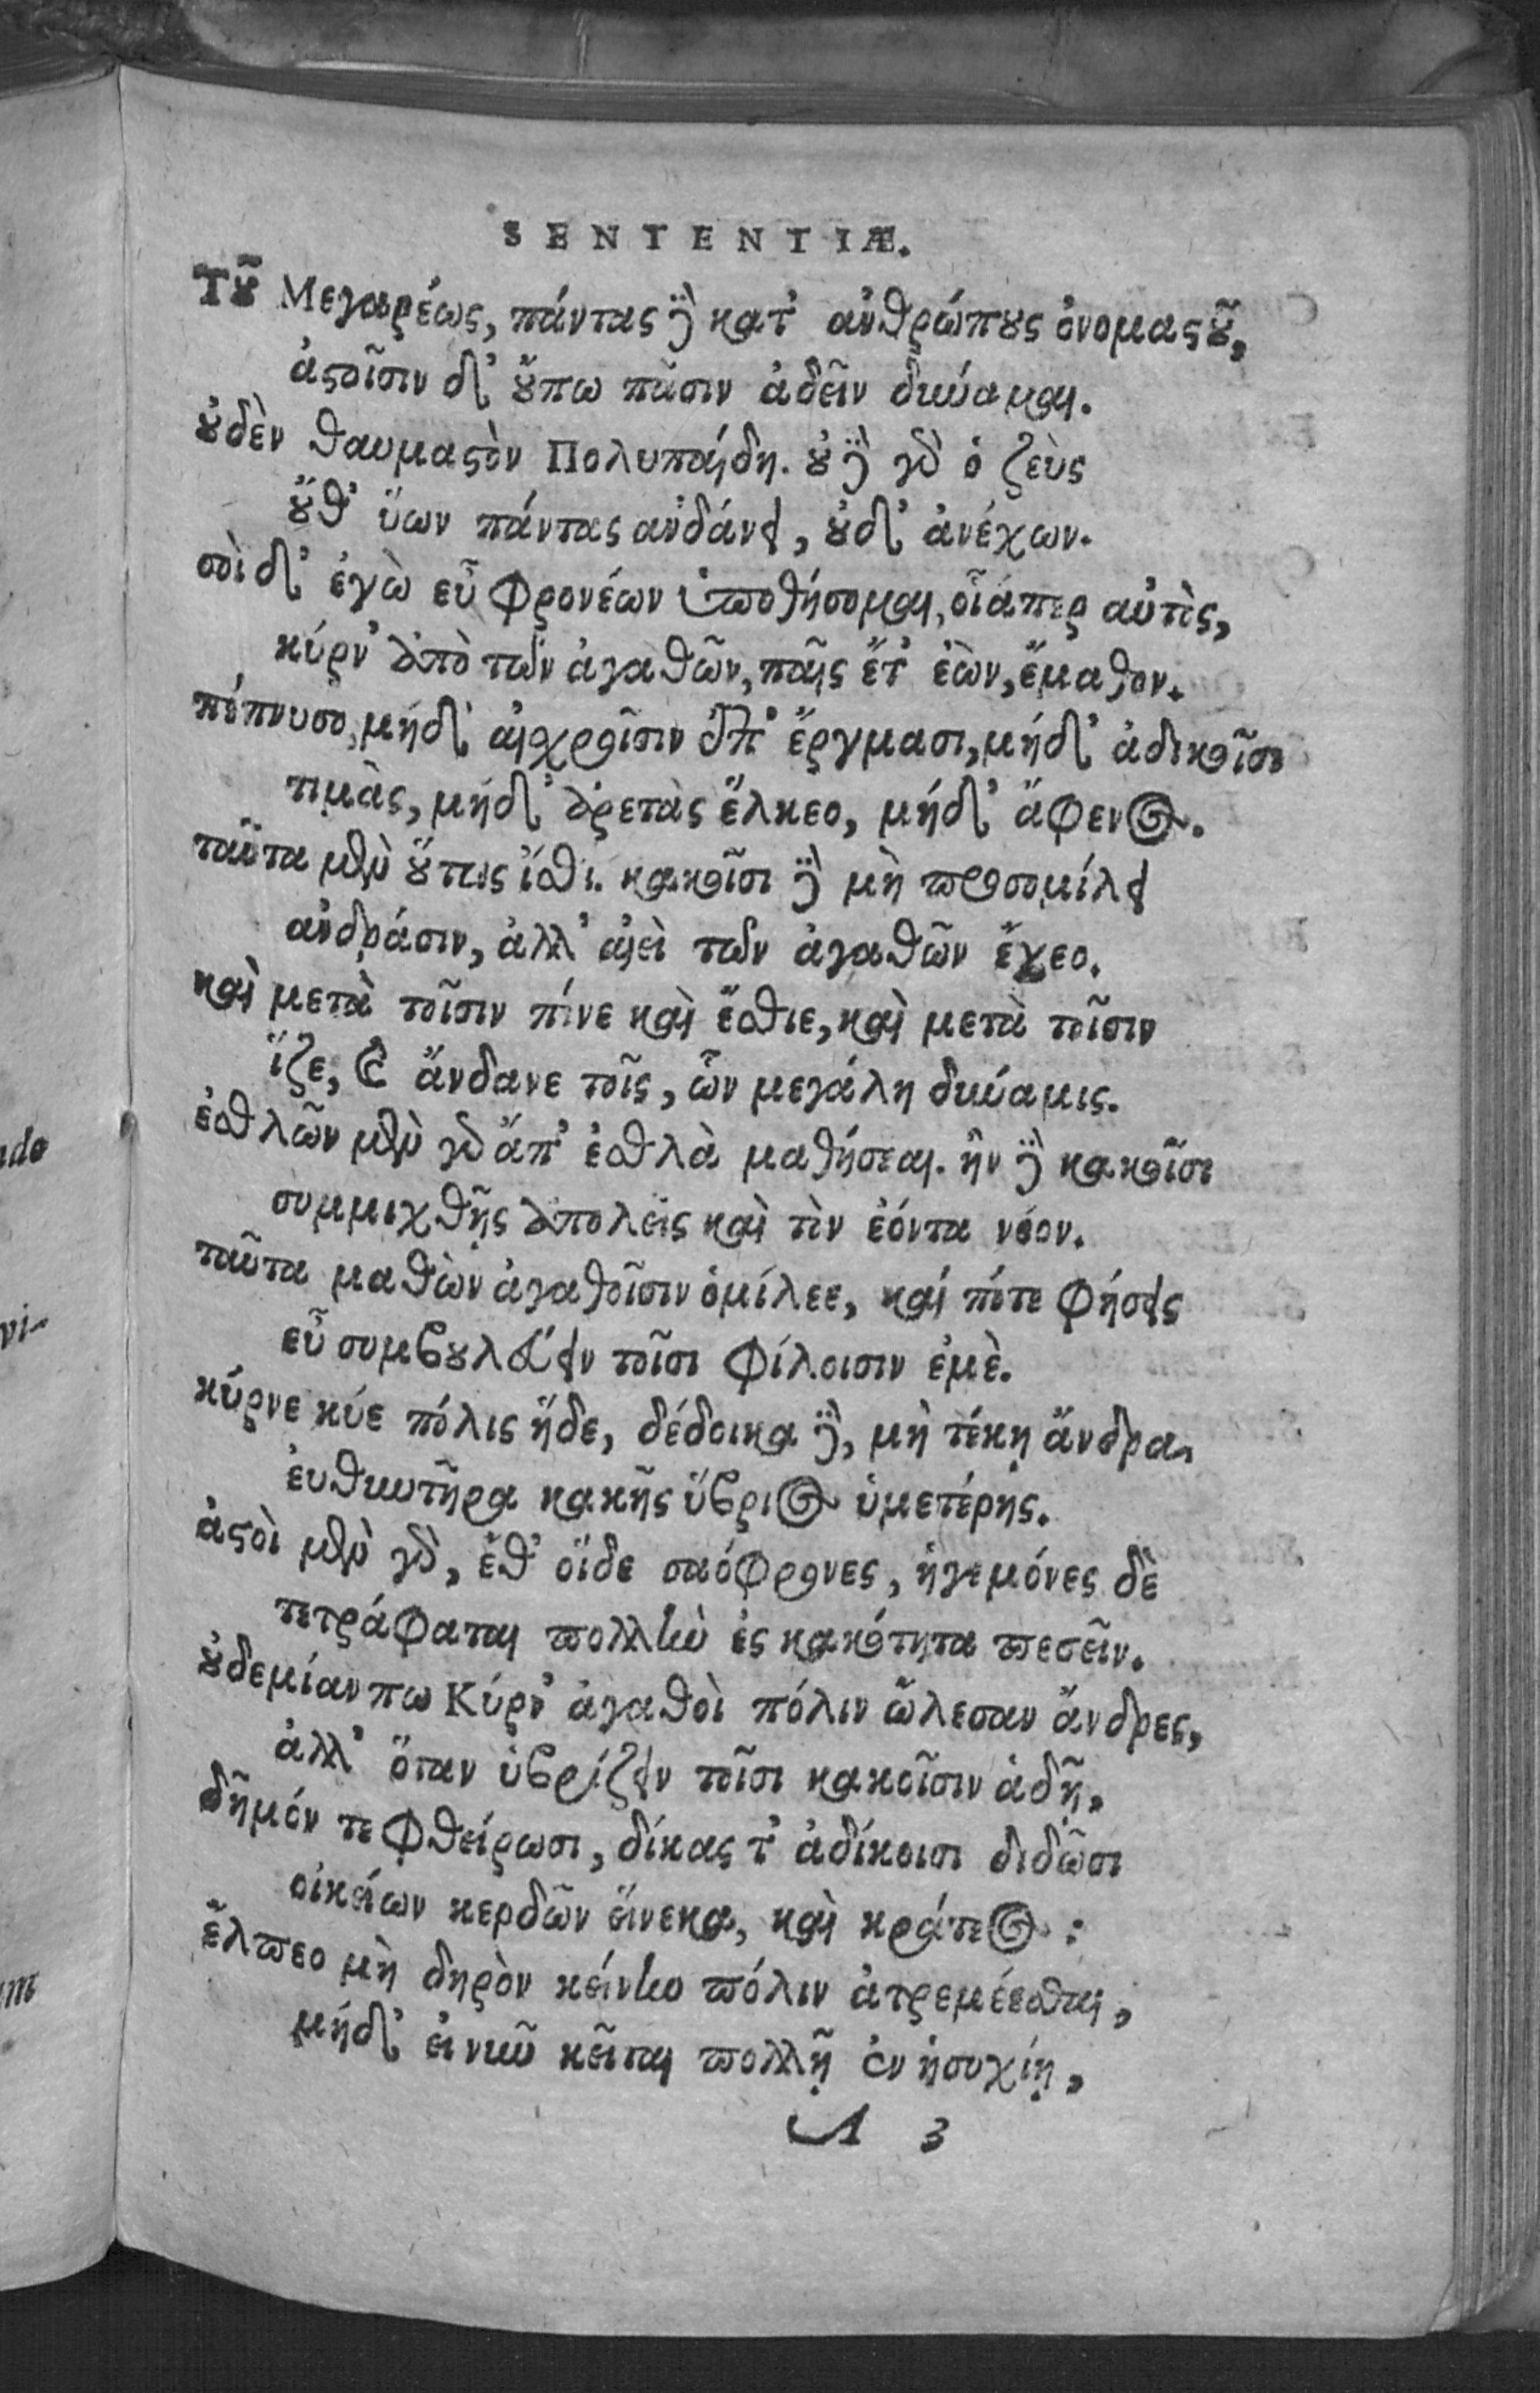 SENTENTIÆ.
Τοῦ Μεγαρέως, πάντας δὲ κατ' ἀνθρώπους ὀνομαστοῦ,
ἀστοῖσιν δ' οὔπω πᾶσιν ἁδεῖν δύναμαι.
οὐδὲν θαυμαστὸν Πολυπαίδη. οὐδὲ γὰρ ὁ ζεὺς
οὔθ' ὕων πάντας ἁνδάνει, οὐδ' ἀνέχων.
σοὶ δ' ἐγὼ εὖ φρονέων ὑποθήσομαι, οἷάπερ αὐτὸς,
κύρν' ἀπὸ τῶν ἀγαθῶν, παῖς ἔτ' ἐὼν, ἔμαθον.
πέπνυσο, μήδ' αἰσχροῖσιν ἐπ' ἔργμασι, μήδ' ἀδικοῖσι
τιμὰς, μήδ' ἀρετὰς ἕλκεο, μήδ' ἄφενος.
ταῦτα μὲν οὕτως ἴσθι. κακοῖσι δὲ μὴ προσομίλει
ἀνδράσιν, ἀλλ' αἰεὶ τῶν ἀγαθῶν ἔχεο.
καὶ μετὰ τοῖσιν πίνε καὶ ἔσθιε, καὶ μετὰ τοῖσιν
ἵζε, καὶ ἅνδανε τοῖς, ὧν μεγάλη δύναμις.
ἐσθλῶν μὲν γὰρ ἄπ' ἐσθλὰ μαθήσεαι. ἢν δὲ κακοῖσι
συμμιχθῇς ἀπολεῖς καὶ τὸν ἐόντα νόον.
ταῦτα μαθὼν ἀγαθοῖσιν ὁμίλεε, καί ποτε φήσεις
εὖ συμβουλεύειν τοῖσι φίλοισιν ἐμέ.
κύρνε κύε πόλις ἥδε, δέδοικα δὲ, μὴ τέκῃ ἄνδρα
εὐθυντῆρα κακῆς ὕβριος ὑμετέρης.
ἀστοὶ μὲν γὰρ, ἔθ' οἵδε σαόφρονες, ἡγεμόνες δὲ
τετράφαται πολλὴν ἐς κακότητα πεσεῖν.
οὐδεμίαν πω Κύρν' ἀγαθοὶ πόλιν ὤλεσαν ἄνδρες,
ἀλλ' ὅταν ὑβρίζειν τοῖσι κακοῖσιν ἁδῇ,
δῆμόν τε φθείρωσι, δίκας τ' ἀδίκοισι διδῶσι
οἰκείων κερδῶν εἵνεκα, καὶ κράτεος:
ἔλπεο μὴ δηρὸν κείνην πόλιν ἀτρεμέεσθαι,
μήδ' εἰ νῦν κεῖται πολλῇ ἐν ἡσυχίῃ,
A 3